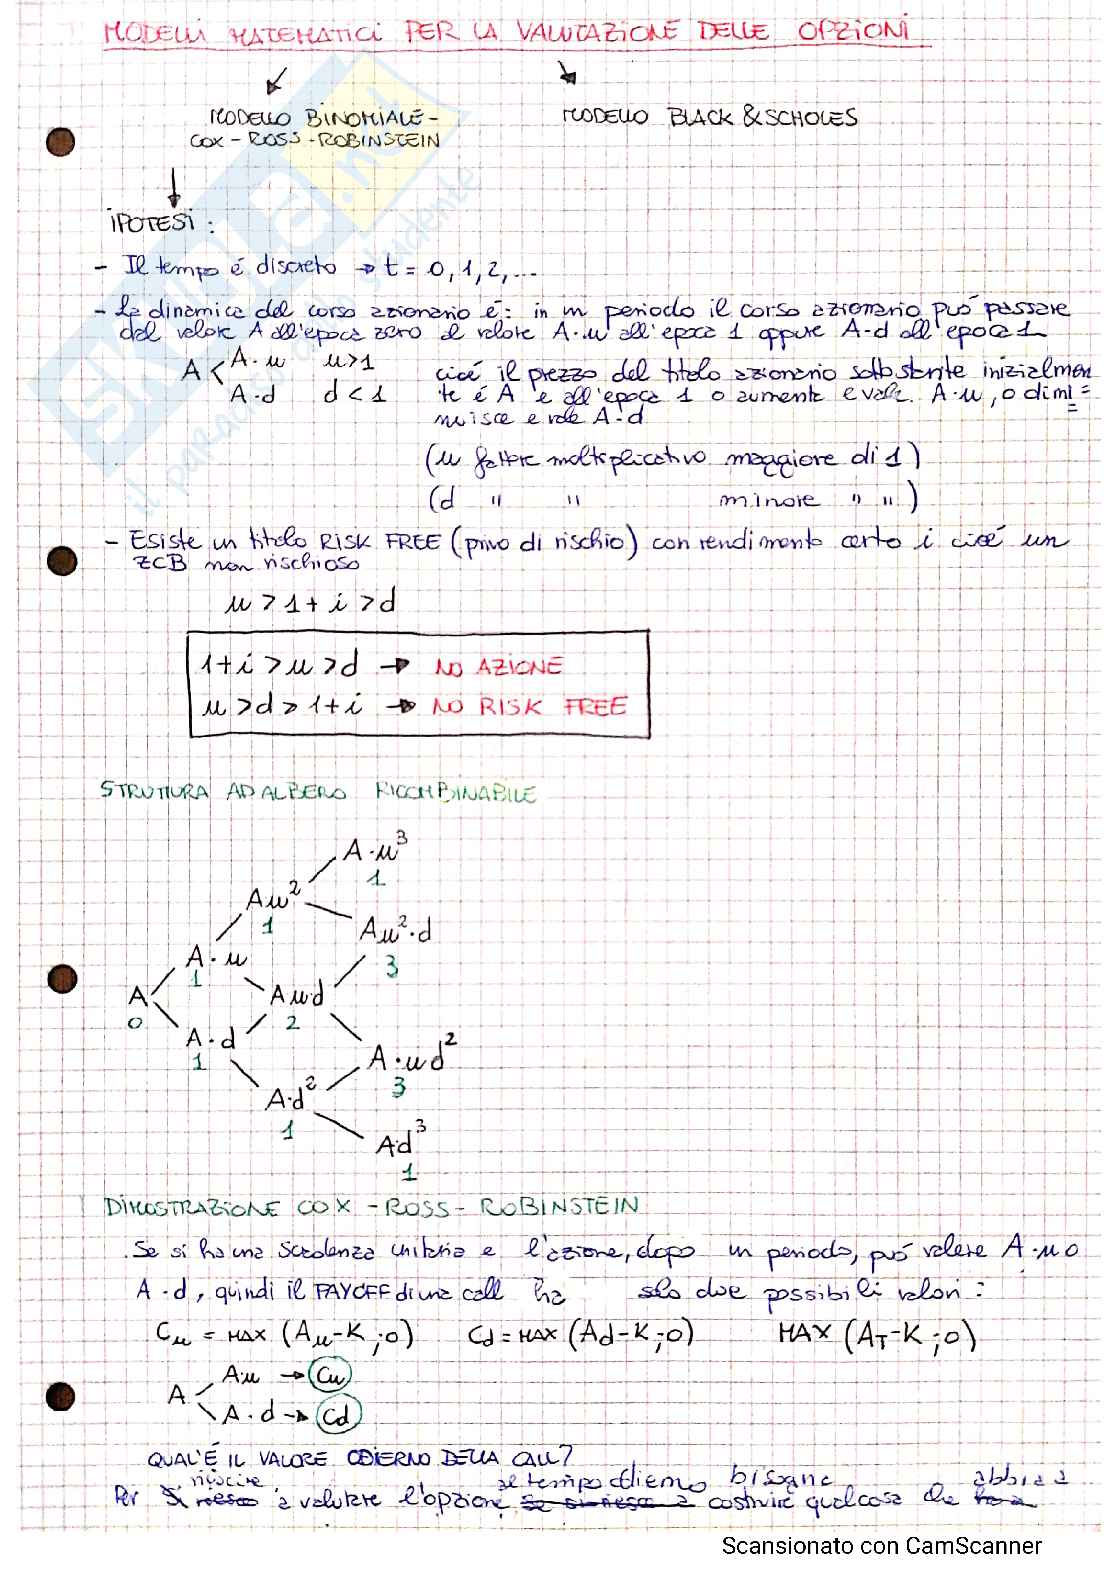 MODELLI MATEMATICI PER LA VALUTAZIONE DELLE OPZIONI
MODELLO BINOMIALE-
COX-ROSS-ROBINSTEIN
MODELLO BLACK & SCHOLES
IPOTESI:
- Il tempo é discreto → t = 0,1,2,...
- la dinamica del corso azionario é: in un periodo il corso azionario può passare
dal valore A all'epoca zero al valore A·u all'epoca 1 oppure A·d all'epoca 1
A < A·u u>1
A·d d<1
cioé il prezzo del titolo azionario sottostante inizialmen
te é A e all'epoca 1 o aumenta e vale A·u, o dimi=
nuisce e vale A·d
(u fattore moltiplicativo maggiore di 1)
(d " " minore " ")
- Esiste un titolo RISK FREE (privo di rischio) con rendimento certo i cioé un
ZCB non rischioso
u > 1+i > d
1+i > u > d → NO AZIONE
u > d > 1+i → NO RISK FREE
STRUTTURA AD ALBERO RICOMBINABILE
A·u³
1
Au²
1
Au²·d
3
A·u
1
A
0
Aud
2
A·d
1
A·ud²
3
A·d²
1
Ad³
1
DIMOSTRAZIONE COX-ROSS-ROBINSTEIN
Se si ha una scadenza unitaria e l'azione, dopo un periodo, può valere A·u o
A·d, quindi il PAYOFF di una call ha solo due possibili valori:
Cu = MAX (Au-K;0) Cd = MAX (Ad-K;0) MAX (A_T-K;0)
A < A·u → Cu
A·d → Cd
QUAL'É IL VALORE ODIERNO DELLA CALL?
Per riuscire a valutare l'opzione al tempo odierno bisogna costruire qualcosa che abbia a
Scansionato con CamScanner
SKUOLA.net
il paradiso dello studente